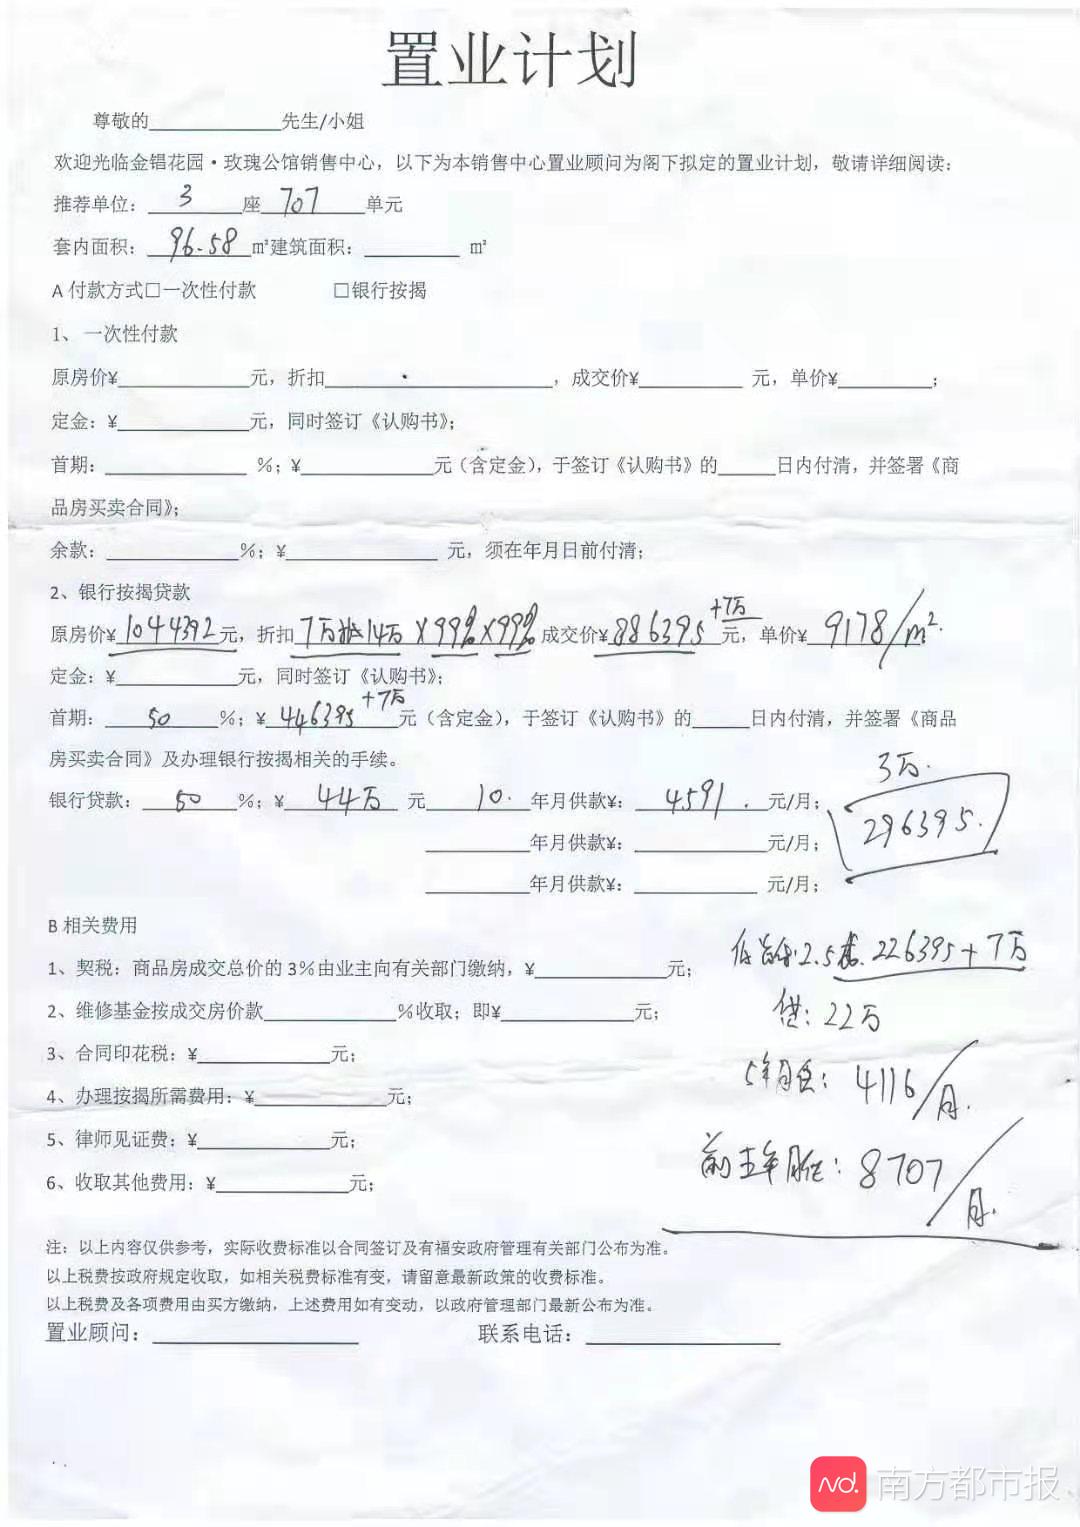 置业计划
尊敬的____________先生/小姐
欢迎光临金锠花园·玫瑰公馆销售中心，以下为本销售中心置业顾问为阁下拟定的置业计划，敬请详细阅读：
推荐单位：3座707单元
套内面积：96.58㎡建筑面积：________㎡
A 付款方式□一次性付款 □银行按揭
1、 一次性付款
原房价¥____________元，折扣____________，成交价¥________元，单价¥________；
定金：¥____________元，同时签订《认购书》；
首期：____________%；¥____________元（含定金），于签订《认购书》的_____日内付清，并签署《商
品房买卖合同》；
余款：____________%；¥____________元，须在年月日前付清；
2、银行按揭贷款
原房价¥1044392元，折扣7万抵14万×99%×99%成交价¥886395+7万元，单价¥9178/m²
定金：¥____________元，同时签订《认购书》；
首期：50%；¥446395+7万元（含定金），于签订《认购书》的_____日内付清，并签署《商品
房买卖合同》及办理银行按揭相关的手续。
3万.
银行贷款：50%；¥44万元10.年月供款¥：4591.元/月；
296395.
________年月供款¥：____________元/月；
________年月供款¥：____________元/月；
B 相关费用
1、契税：商品房成交总价的 3%由业主向有关部门缴纳，¥____________元；
2.5 226395+7万
2、维修基金按成交房价款____________%收取；即¥____________元；
借：22万
3、合同印花税：¥____________元；
5年月供：4116/月.
4、办理按揭所需费用：¥____________元；
5、律师见证费：¥____________元；
前五年月供：8707/月.
6、收取其他费用：¥____________元；
注：以上内容仅供参考，实际收费标准以合同签订及有福安政府管理有关部门公布为准。
以上税费按政府规定收取，如相关税费标准有变，请留意最新政策的收费标准。
以上税费及各项费用由买方缴纳，上述费用如有变动，以政府管理部门最新公布为准。
置业顾问：____________ 联系电话：____________
Nd. 南方都市报